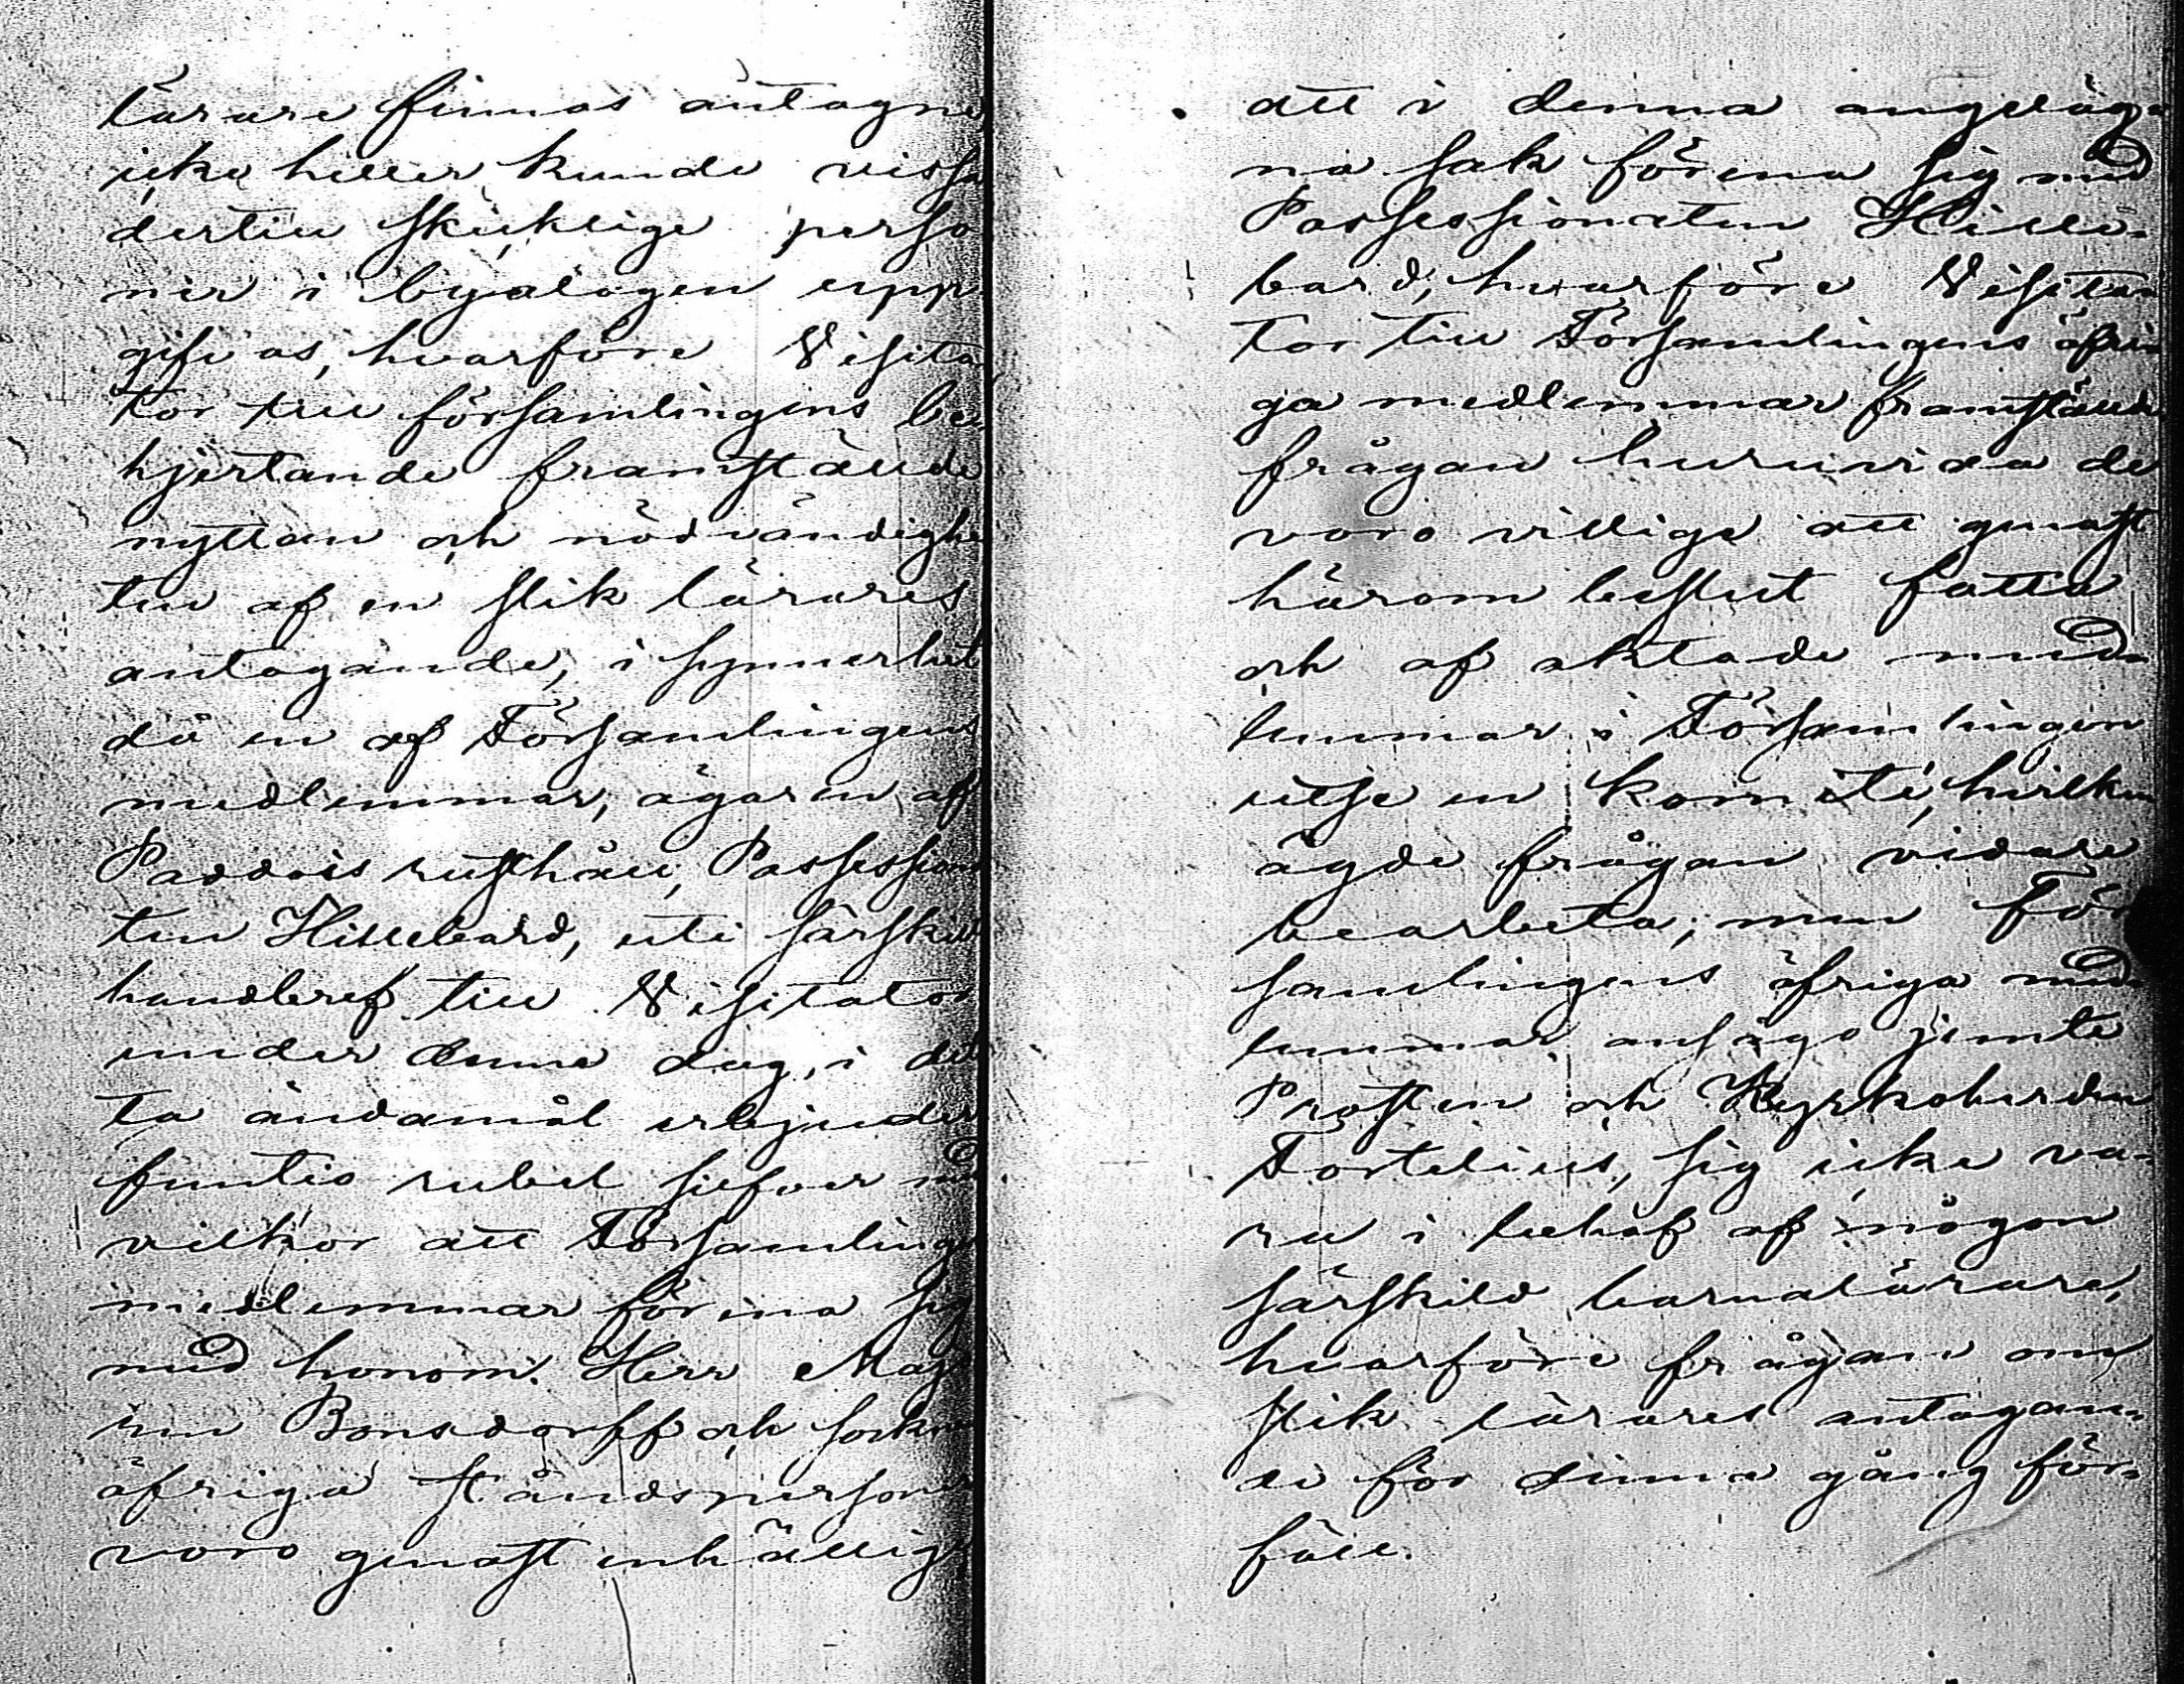 lärare finnas antagne,
icke heller kunde vissa
dertill skicklige perso
ner i byalagen upp
gifvas, hvarföre Visita
tor till församlingens be
hjertande framställde
nyttan och nödvändighe
ten af en slik lärares
antagande, i synnerhet
då en af Församlingens
medlemmar, ägaren af
Paddais rusthåll, Possessiona
ten Hillebard, uti särskild
handbref till Visitator
under denna dag, i det
ta ändamål erbjuder
femtio rubel silfver med
vilkor att Församlings
medlemmar förena sig
med honom. Herr Majo
ren Bonsdorff och socknens
öfriga Ståndspersoner
voro genast enhällige
att i denna angeläg
na sak förena sig med
Possessionaten Hille-
bard, hvarföre Visita
tor till Församlingens öfri
ga medlemmar framställde
frågan huruvida de
voro villiga att genast
härom beslut fatta
och af aktade med-
lemmar i Församlingen
utse en komité, hvilken
ägde frågan vidare
bearbeta; men För
samlingens öfriga med-
lemmar ansågo jemte
Prosten och Kyrkoherden
Fortelius, sig icke va-
ra i behof af någon
särskild barnalärare,
hvarföre frågan om
slik lärares antagan-
de för denna gång för-
föll.